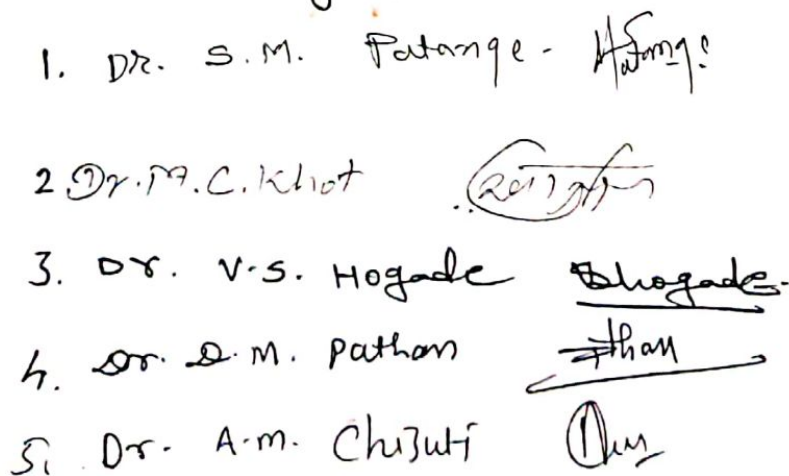 1. Dr. S.M. Patange -
2 Dr. M.C. Khot
3. Dr. V.S. Hogade Bhogade
4. Dr. D.M. Pathan
5. Dr. A.M.